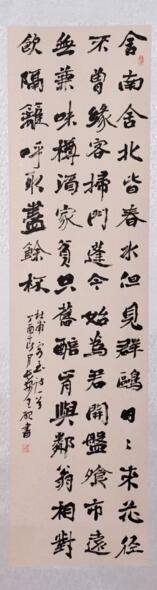 舍南舍北皆春水但見群鷗日〻來花徑
不曾緣客掃門蓬今始為君開盤飧市遠
無兼味樽酒家貧只舊醅肯與鄰翁相對
飲隔籬呼取盡餘杯
杜甫客至詩一首
丁酉 書